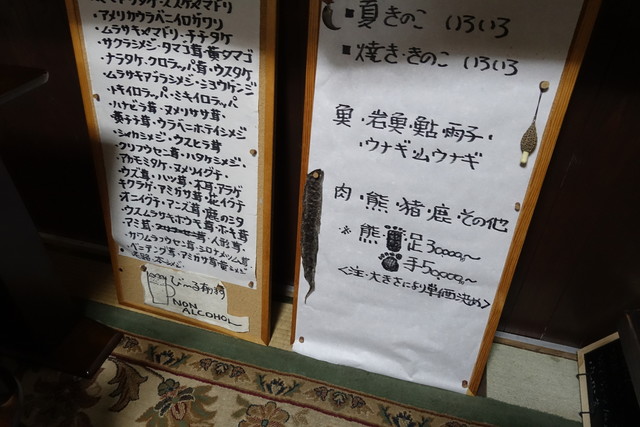 ・アメリカウラベニイロガワリ
・ムラサキヤマドリ・チチタケ
・サクラシメジ・タマゴ茸・黄タマゴ
・ナラタケ・クロラッパ茸・ウスタケ
・ムラサキアブラシメジ・ショウゲンジ
・トキイロラッパ・ミキイロラッパ
・ハナビラ茸・ヌメリササ茸
・黄チチ茸・ウラベニホテイシメジ
・シャカシメジ・ウスヒラ茸
・クリフウセン茸・ハタケシメジ
・アカモミタケ・ヌメリイグチ
・ウズ茸・ハツ茸・木耳・アラゲ
キクラゲ・アミガサ茸・花イグチ
・オニイグチ・アンズ茸・鹿の舌
・ウスムラサキホウキ茸・ホウキ茸
・アミ茸・人形茸
・カワムラフウセン茸・シロヌメリ茸
・ベニテング茸・アミガサ茸
びーる有〼
NON
ALCOHOL
■夏きのこ いろいろ
■焼き・きのこ いろいろ
魚・岩魚・鮎・雨子・
・ウナギ・山ウナギ
肉・熊・猪・鹿・その他
※ 熊 足30000円〜
手50000円〜
<注・大きさにより単価決め>